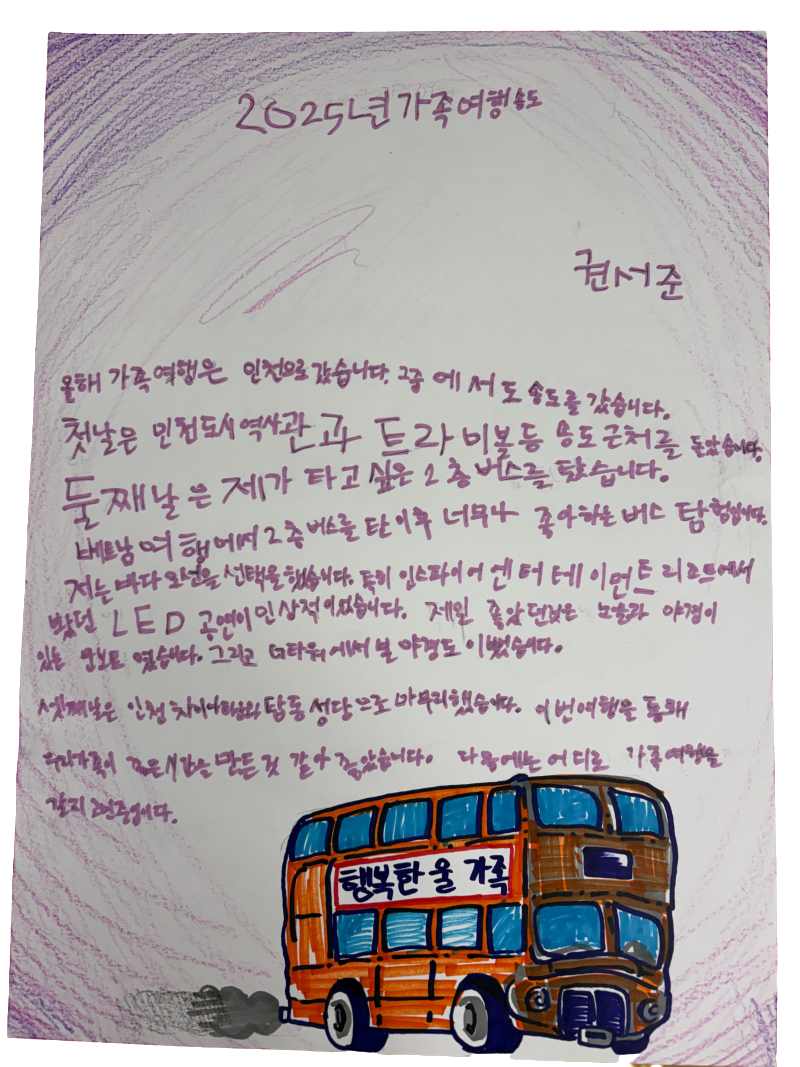 2025년 가족여행 송도
권서준
올해 가족여행은 인천으로 갔습니다. 그중에서도 송도를 갔습니다.
첫날은 인천도시역사관과 트라이보울 등 송도 근처를 돌았습니다.
둘째날은 제가 타고 싶은 2층버스를 탔습니다.
베트남 여행에서 2층 버스를 탄 이후 너무나 좋아하는 버스 탐험입니다.
저는 바다 노선을 선택을 했습니다. 특히 인스파이어 엔터테이먼트 리조트에서
봤던 LED 공연이 인상적이었습니다. 제일 좋았던 노을과 야경이
있는 였습니다. 그리고 G타워에서 본 야경도 이뻤습니다.
셋째날은 인천 차이나타운와 답동성당으로 마무리했습니다. 이번여행을 통해
우리가족이 좋은시간을 만든것 같아 좋았습니다. 다음에는 어디로 가족여행을
갈지 고민중입니다.
행복한 울 가족